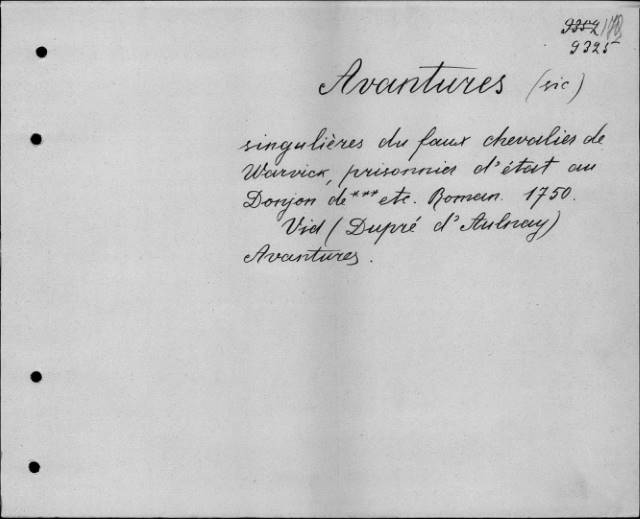 9325
Avantures (sic)
singulières du faux chevalier de
Warvick, prisonnier d'état au
Donjon de *** etc. Roman. 1750.
Vid (Dupré d'Aulnay)
Avantures.